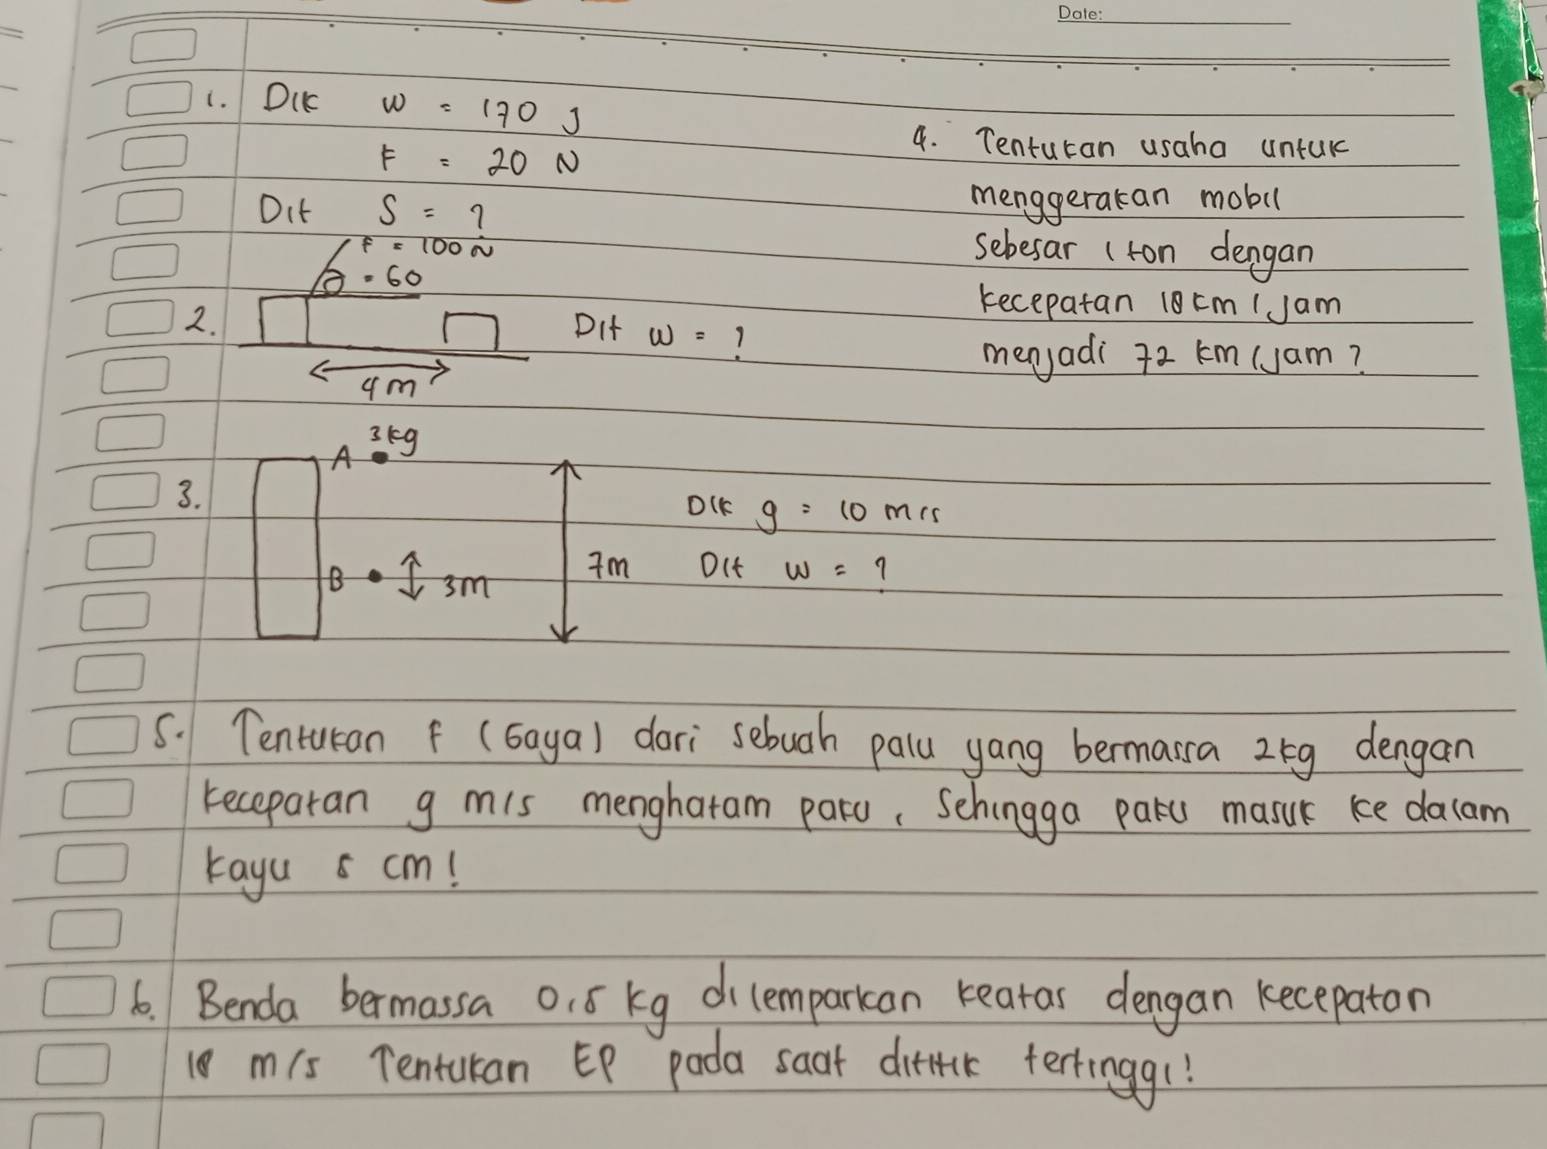 Date:
1. Dik W = 170 J
F = 20 N
Dit S = ?
F = 100 N
θ = 60
2. Dit W = ?
4m
3kg
A
3. Dik g = 10 m/s
7m Dit W = ?
B 3m
4. Tentukan usaha untuk
menggerakan mobil
sebesar 1 ton dengan
kecepatan 18 km/jam
menjadi 72 km/jam?
5. Tentukan F (Gaya) dari sebuah palu yang bermassa 2kg dengan
kecepatan 9 m/s menghatam paku, Sehingga paku masuk ke dalam
kayu 5 cm!
6. Benda bermassa 0,5 kg dilemparkan keatas dengan kecepatan
18 m/s Tentukan EP pada saat dititik tertinggi!